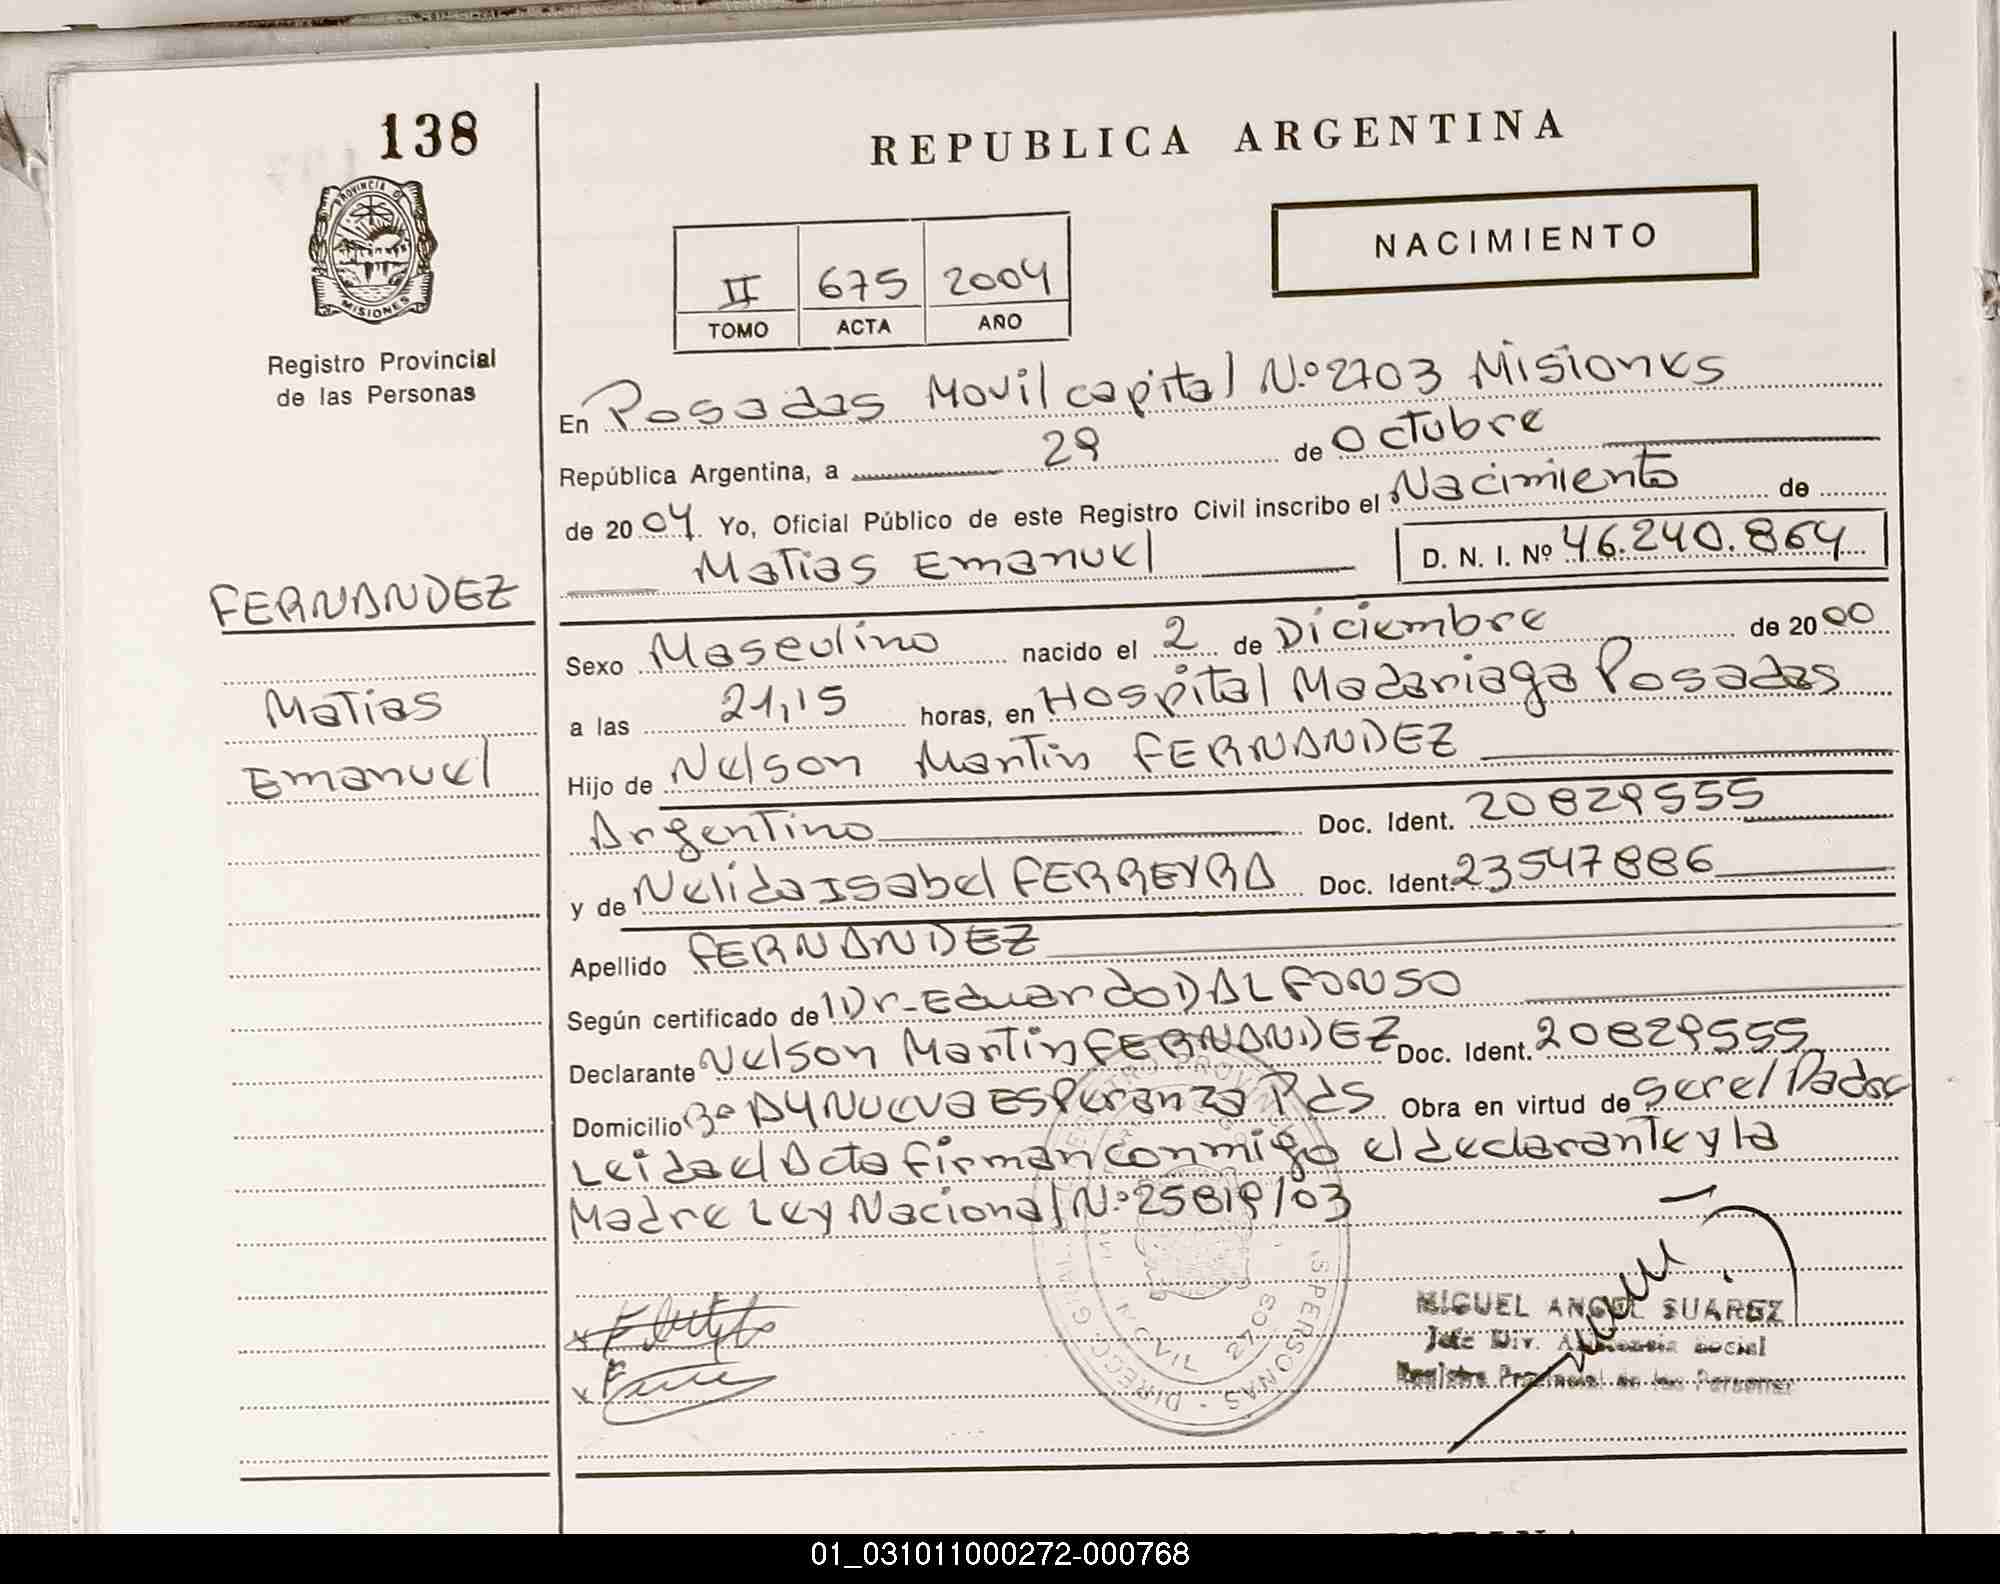 138
REPUBLICA ARGENTINA
PROVINCIA DE
MISIONES
NACIMIENTO
II 675 2004
TOMO ACTA AÑO
Registro Provincial
de las Personas
En Posadas Movil capital N.º 2703 Misiones
República Argentina, a 29 de Octubre
de 2004. Yo, Oficial Público de este Registro Civil inscribo el Nacimiento de
Matias Emanuel D. N. I. Nº 46.240.864
FERNANDEZ
Matias
Emanuel
Sexo Masculino nacido el 2 de Diciembre de 2000
a las 21,15 horas, en Hospital Madariaga Posadas
Hijo de Nelson Martin FERNANDEZ
Argentino Doc. Ident. 20829555
y de Nelida Isabel FERREYRA Doc. Ident. 23547886
Apellido FERNANDEZ
Según certificado de Dr-Eduardo DALFONSO
Declarante Nelson Martin FERNANDEZ Doc. Ident. 20829555
Domicilio Bº A4 Nueva Esperanza Pds Obra en virtud de ser el Padre
Leida el Acta firman conmigo el declarante y la
Madre Ley Nacional N.º 25819/03
MOVIL 2703
MIGUEL ANGEL SUAREZ
Jefe Div. social
Registro Provincial de las Personas
01_031011000272-000768